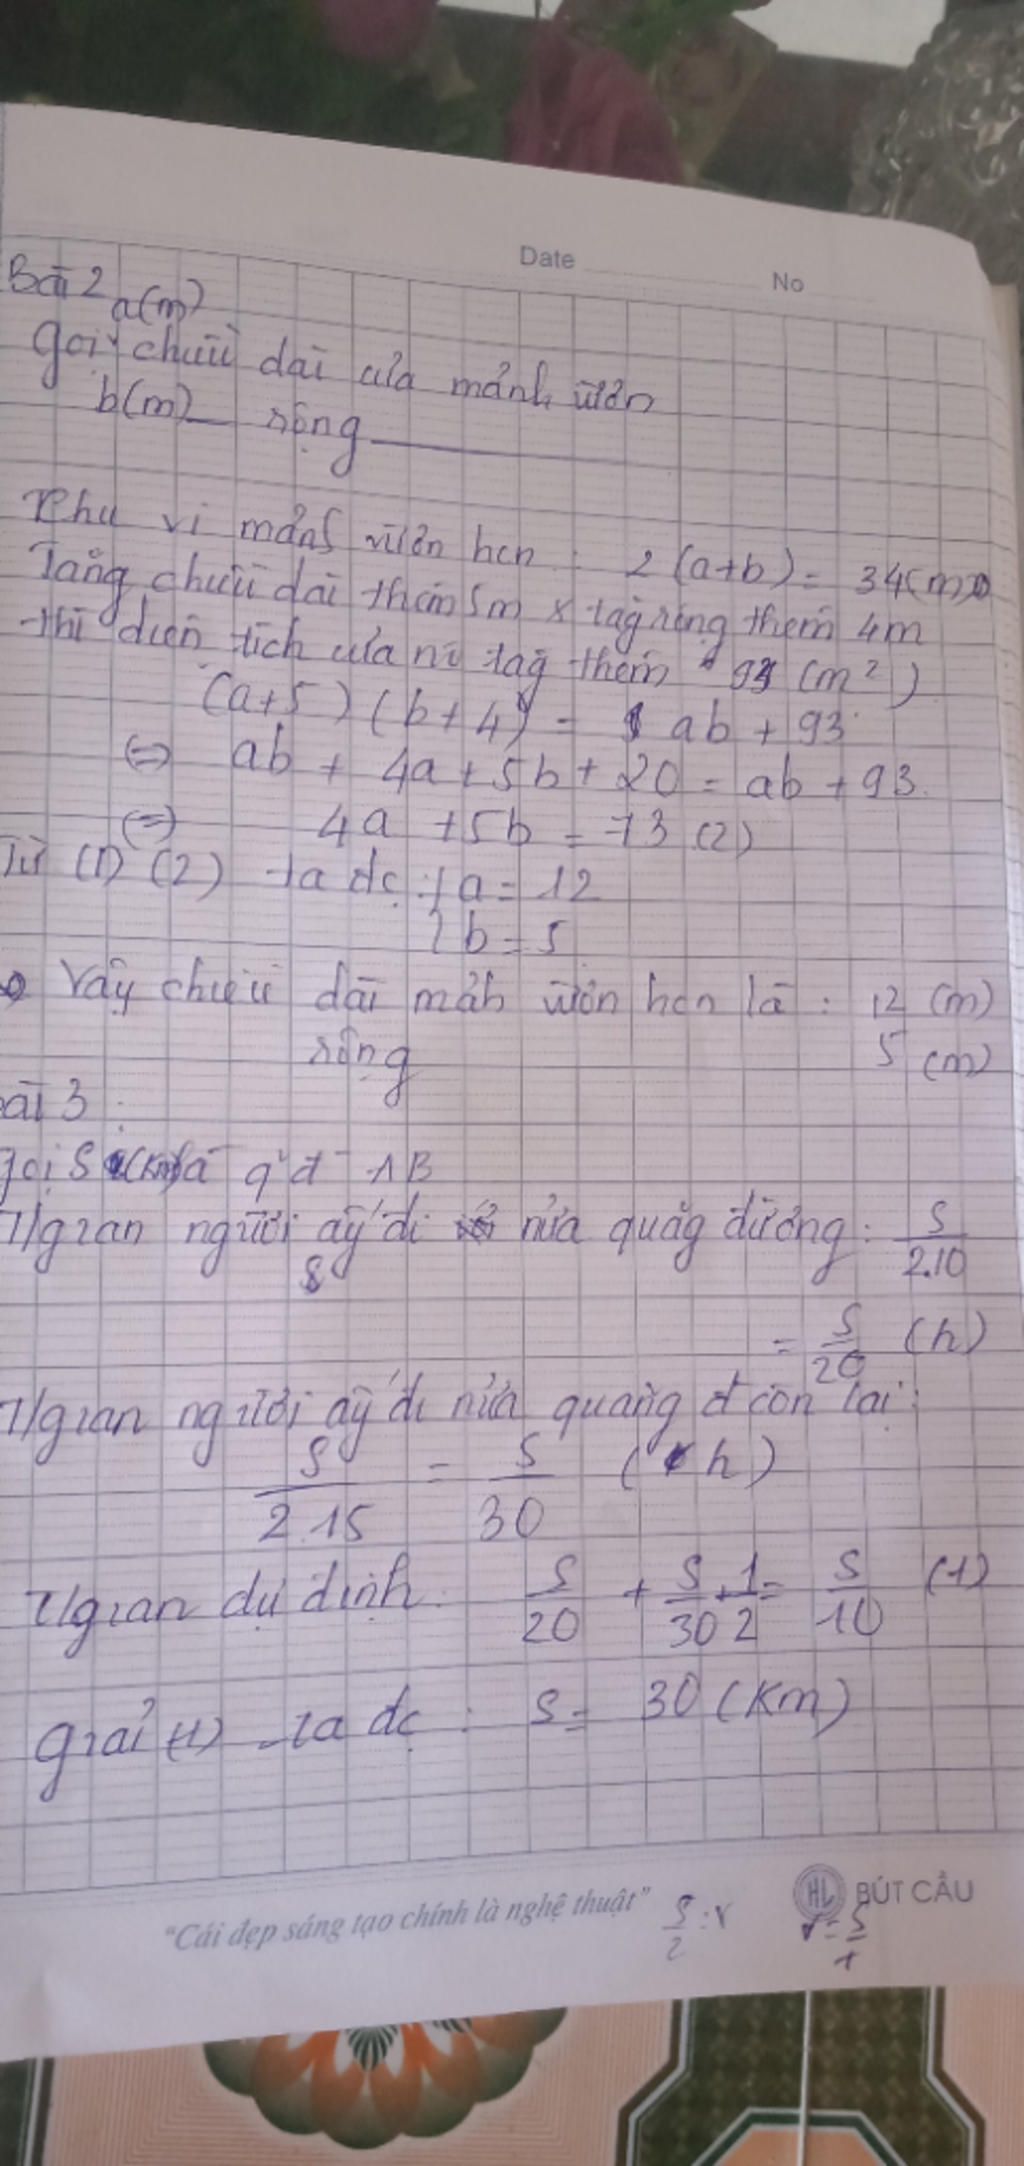 Date No
Bài 2
a(m)
gọi chiều dài của mảnh vườn
b(m) rộng
Chu vi mảnh vườn hcn : 2(a+b) = 34(m)
Tăng chiều dài thêm 5m x tăg rộng thêm 4m
thì diện tích của nó tăg thêm 93 (m²)
(a+5)(b+4) = ab + 93
(=) ab + 4a + 5b + 20 = ab + 93
(=) 4a + 5b = 73 (2)
Từ (1) (2) ta dc : { a = 12
{ b = 5
Vậy chiều dài mảh vườn hcn là : 12 (m)
rộng 5 (m)
ài 3 :
gọi S (km) là q'đ AB
T/gian người ấy đi nửa quãg đường : S/2.10
= S/20 (h)
T/gian người ấy đi nửa quãng đ còn lại :
S/2.15 = S/30 (h)
T/gian dự định : S/20 + S/30 + 1/2 = S/10 (1)
giải (1) ta dc : S = 30 (Km)
"Cái đẹp sáng tạo chính là nghệ thuật" S/2 : v
HL BÚT CẦU
v = S/t